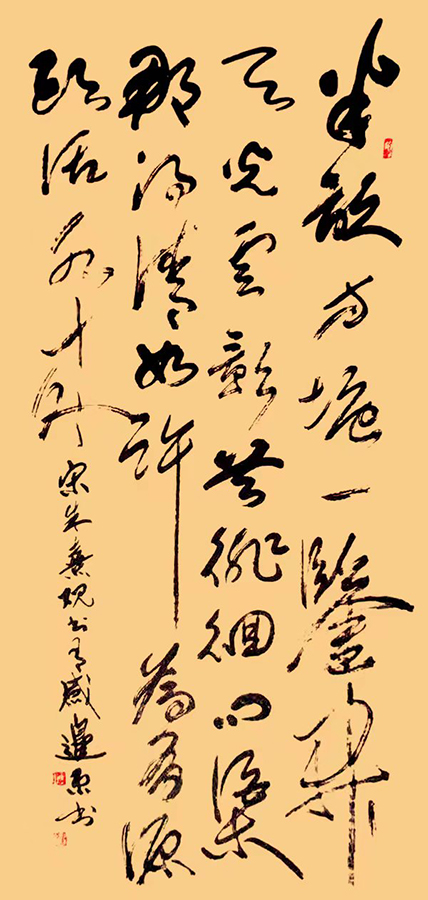 半畝方塘一鑒開
天光雲影共徘徊問渠
那得清如許為有源
頭活水來
宋朱熹觀書有感邊書